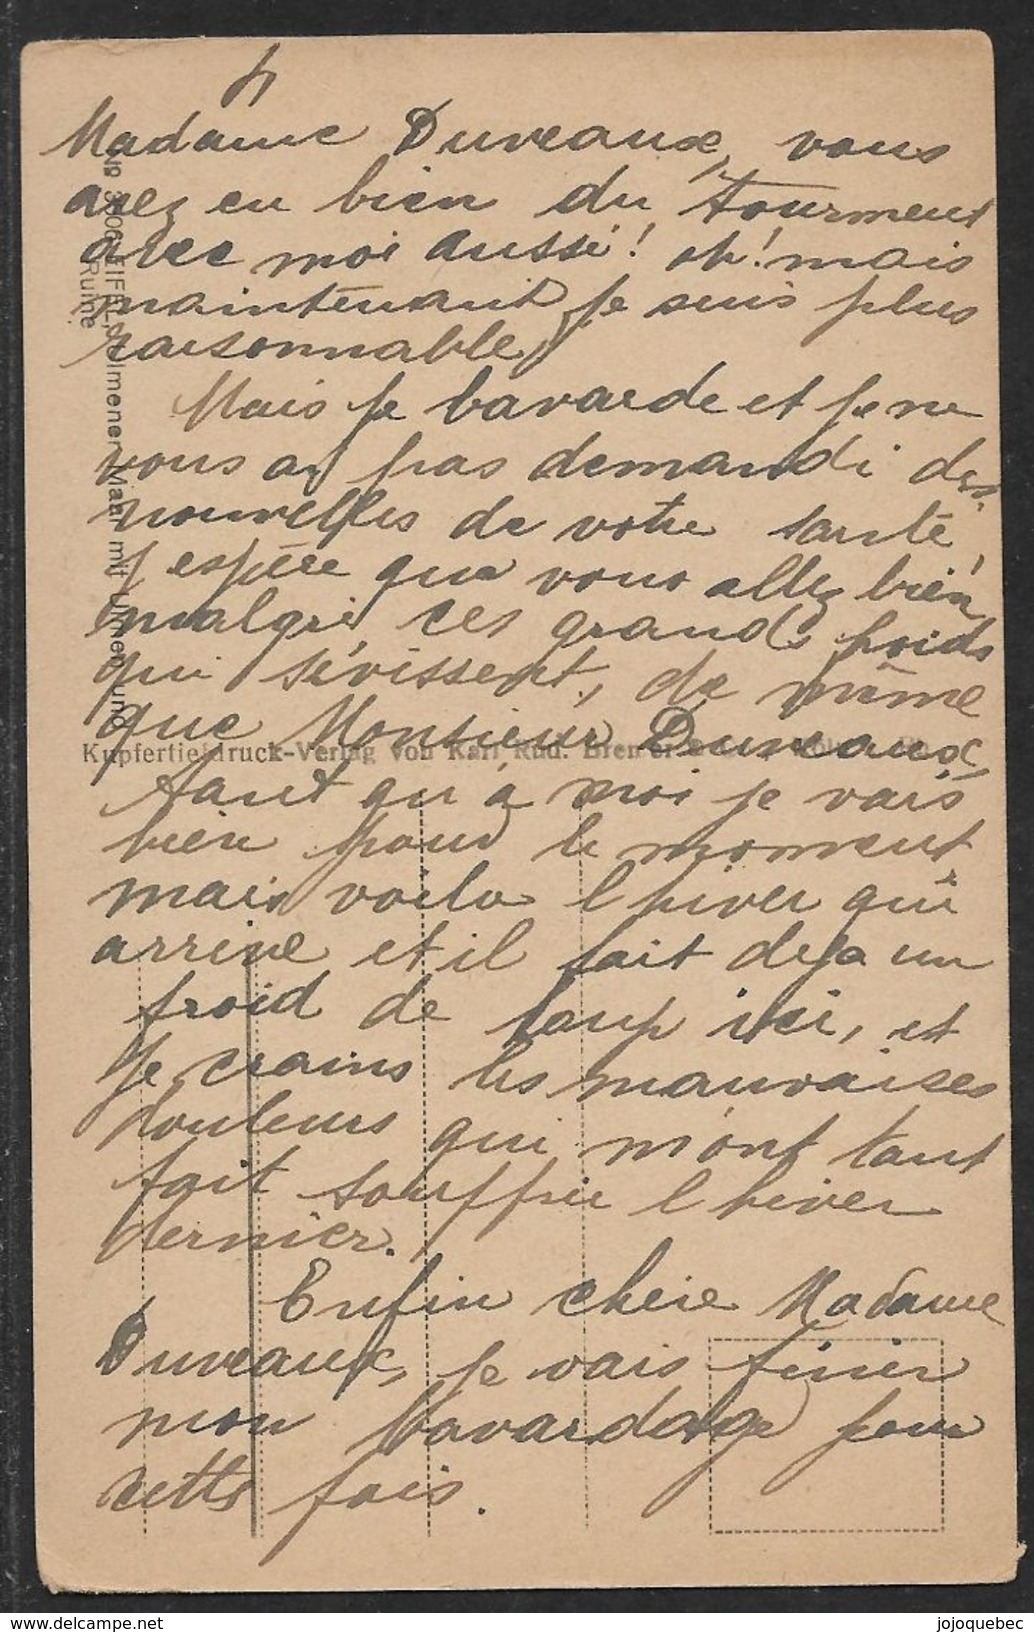 Madame Duveaux, vous
avez eu bien du tourment
avec moi aussi! oh! mais
maintenant je suis plus
raisonnable,
Mais je bavarde et je ne
vous ai pas demandé des
nouvelles de votre santé,
j'espère que vous allez bien
malgré ces grands froids
qui sévissent, de même
que Monsieur Duveaux,
tant qu'à moi je vais
bien pour le moment
mais voila l'hiver qui
arrive et il fait deja un
froid de loup ici, et
je crains les mauvaises
douleurs qui m'ont tant
fait souffrir l'hiver
dernier.
Enfin chère Madame
Duveaux, je vais finir
mon bavardage pour
cette fois.
EIFEL, Ulmener Maar mit Ulmen und
Ruine
Kupfertiefdruck-Verlag von Karl Rud. Bremer
jojoquebec